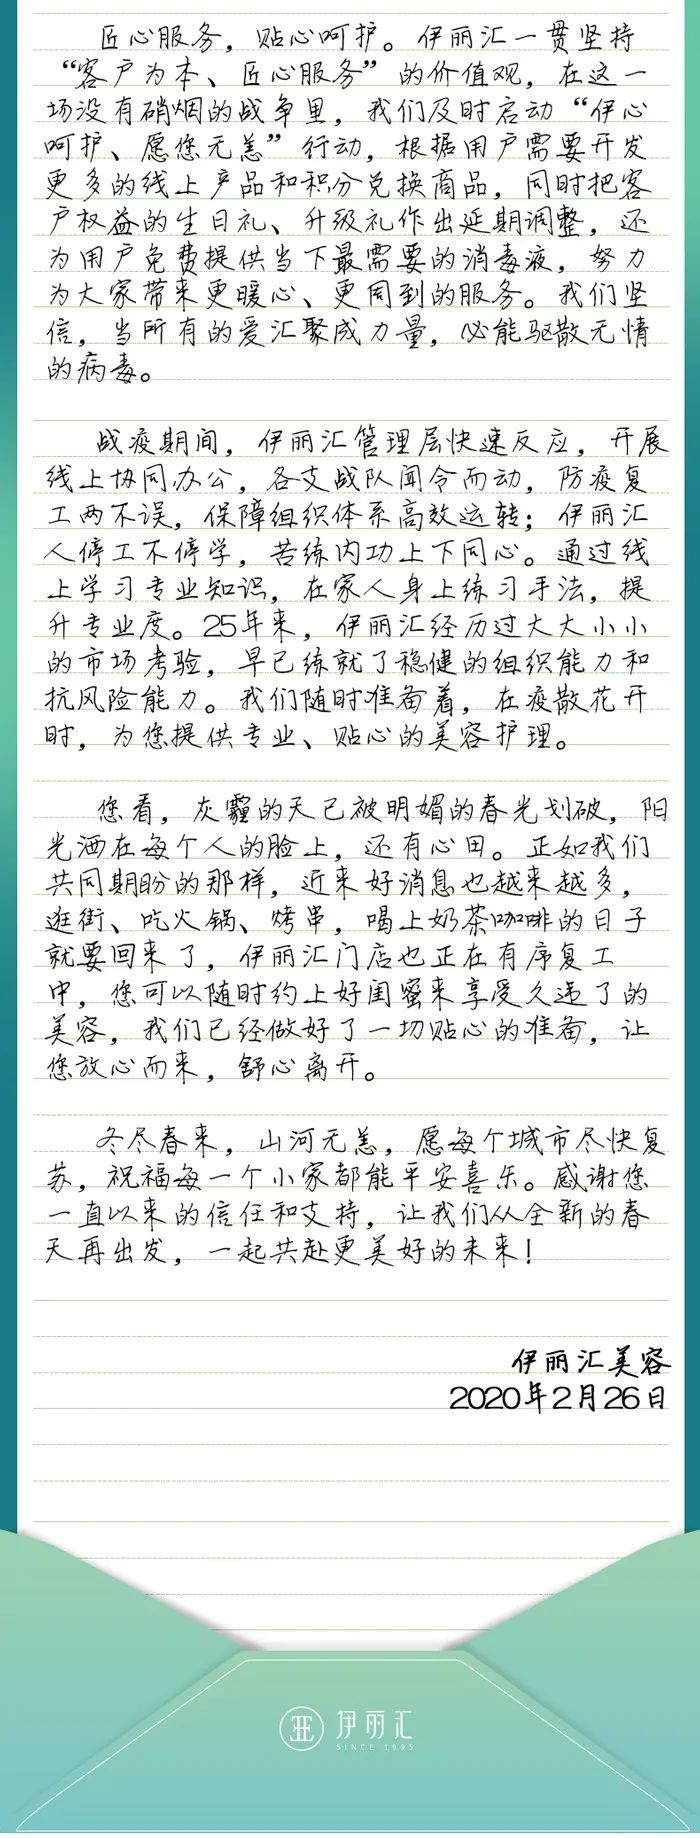 匠心服务，贴心呵护。伊丽汇一贯坚持
“客户为本、匠心服务”的价值观，在这一
场没有硝烟的战争里，我们及时启动“伊心
呵护、愿您无恙”行动，根据用户需要开发
更多的线上产品和积分兑换商品，同时把客
户权益的生日礼、升级礼作出延期调整，还
为用户免费提供当下最需要的消毒液，努力
为大家带来更暖心、更周到的服务。我们坚
信，当所有的爱汇聚成力量，必能驱散无情
的病毒。
战疫期间，伊丽汇管理层快速反应，开展
线上协同办公，各支战队闻令而动，防疫复
工两不误，保障组织体系高效运转；伊丽汇
人停工不停学，苦练内功上下同心。通过线
上学习专业知识，在家人身上练习手法，提
升专业度。25年来，伊丽汇经历过大大小小
的市场考验，早已练就了稳健的组织能力和
抗风险能力。我们随时准备着，在疫散花开
时，为您提供专业、贴心的美容护理。
您看，灰霾的天已被明媚的春光划破，阳
光洒在每个人的脸上，还有心田。正如我们
共同期盼的那样，近来好消息也越来越多，
逛街、吃火锅、烤串，喝上奶茶咖啡的日子
就要回来了，伊丽汇门店也正在有序复工
中，您可以随时约上好闺蜜来享受久违了的
美容，我们已经做好了一切贴心的准备，让
您放心而来，舒心离开。
冬尽春来，山河无恙，愿每个城市尽快复
苏，祝福每一个小家都能平安喜乐。感谢您
一直以来的信任和支持，让我们从全新的春
天再出发，一起共赴更美好的未来！
伊丽汇美容
2020年2月26日
伊丽汇
SINCE 1995